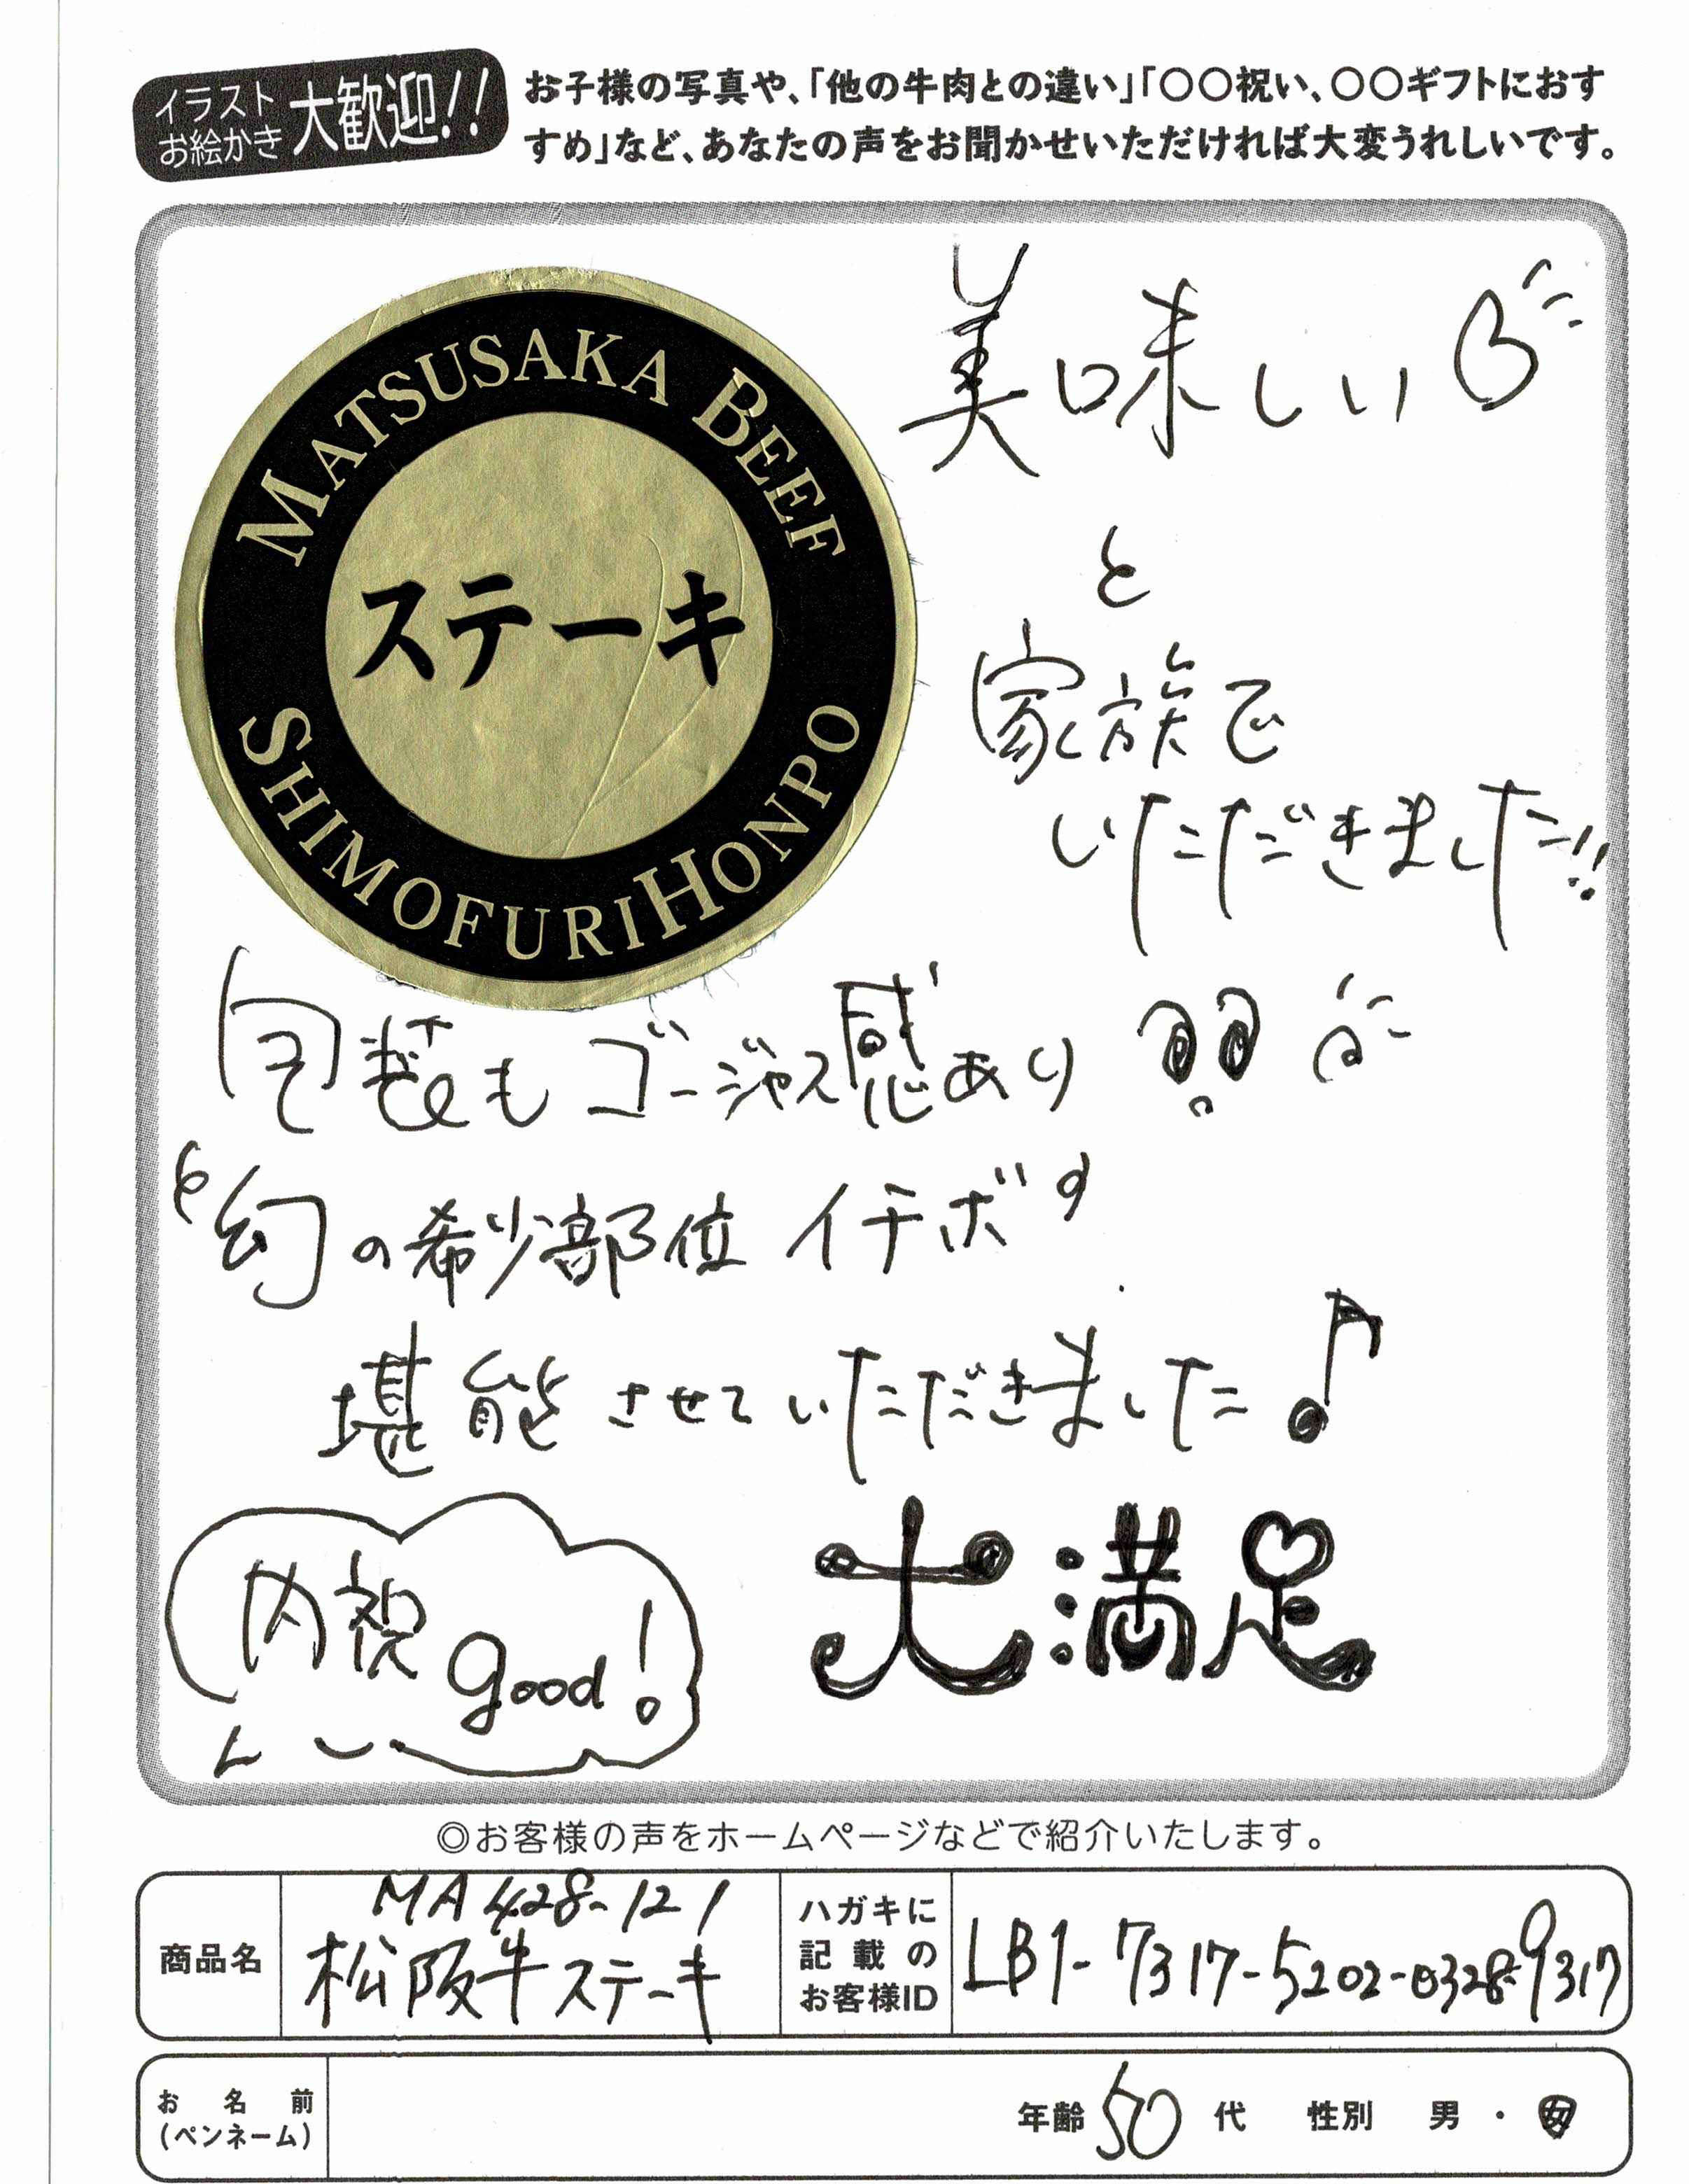 イラスト
お絵かき
大歓迎!!
お子様の写真や、「他の牛肉との違い」「〇〇祝い、〇〇ギフトにおす
すめ」など、あなたの声をお聞かせいただければ大変うれしいです。
MATSUSAKA BEEF
ステーキ
SHIMOFURI HONPO
美味しい
と
家族で
いただきました!!
包装もゴージャス感あり
“幻の希少部位 イチボ”
堪能させていただきました♪
内祝 good!
大満足
◎お客様の声をホームページなどで紹介いたします。
商品名
MA428-121
松阪牛ステーキ
ハガキに
記載の
お客様ID
LB1-7317-5202-0328-9317
お名前
(ペンネーム)
年齢 50 代 性別 男・女